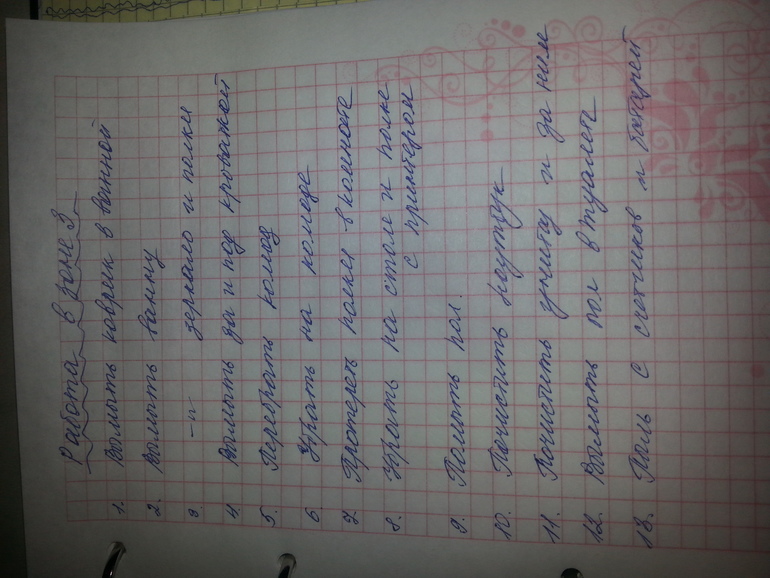 Работа в зоне 3
1. Вымыть коврик в ванной
2. Вымыть ванну
3. —"— зеркало и полки
4. Вымыть за и под кроваткой
5. Перебрать комод
6. Убрать на комоде
7. Протереть полки в комнате
8. Убрать на столе и полке
с принтером
9. Помыть пол.
10. Почистить ноутбук
11. Почистить унитаз и за ним
12. Вымыть пол в туалете
13. Пыль с счетчиков и батарей